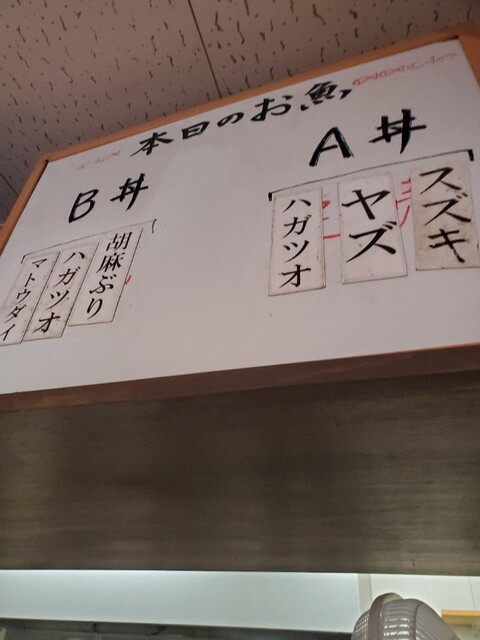 本日のお魚
A丼
スズキ
ヤズ
ハガツオ
B丼
胡麻ぶり
ハガツオ
マトウダイ